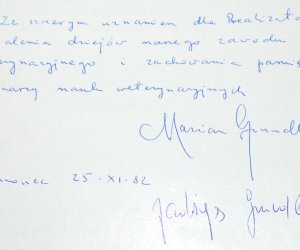 Ze szczerym uznaniem dla Realizato
alenia dziejów naszego zawodu
erynaryjnego i zachowania pamię
nauk weterynaryjnych
Marian
25 - XI. 82